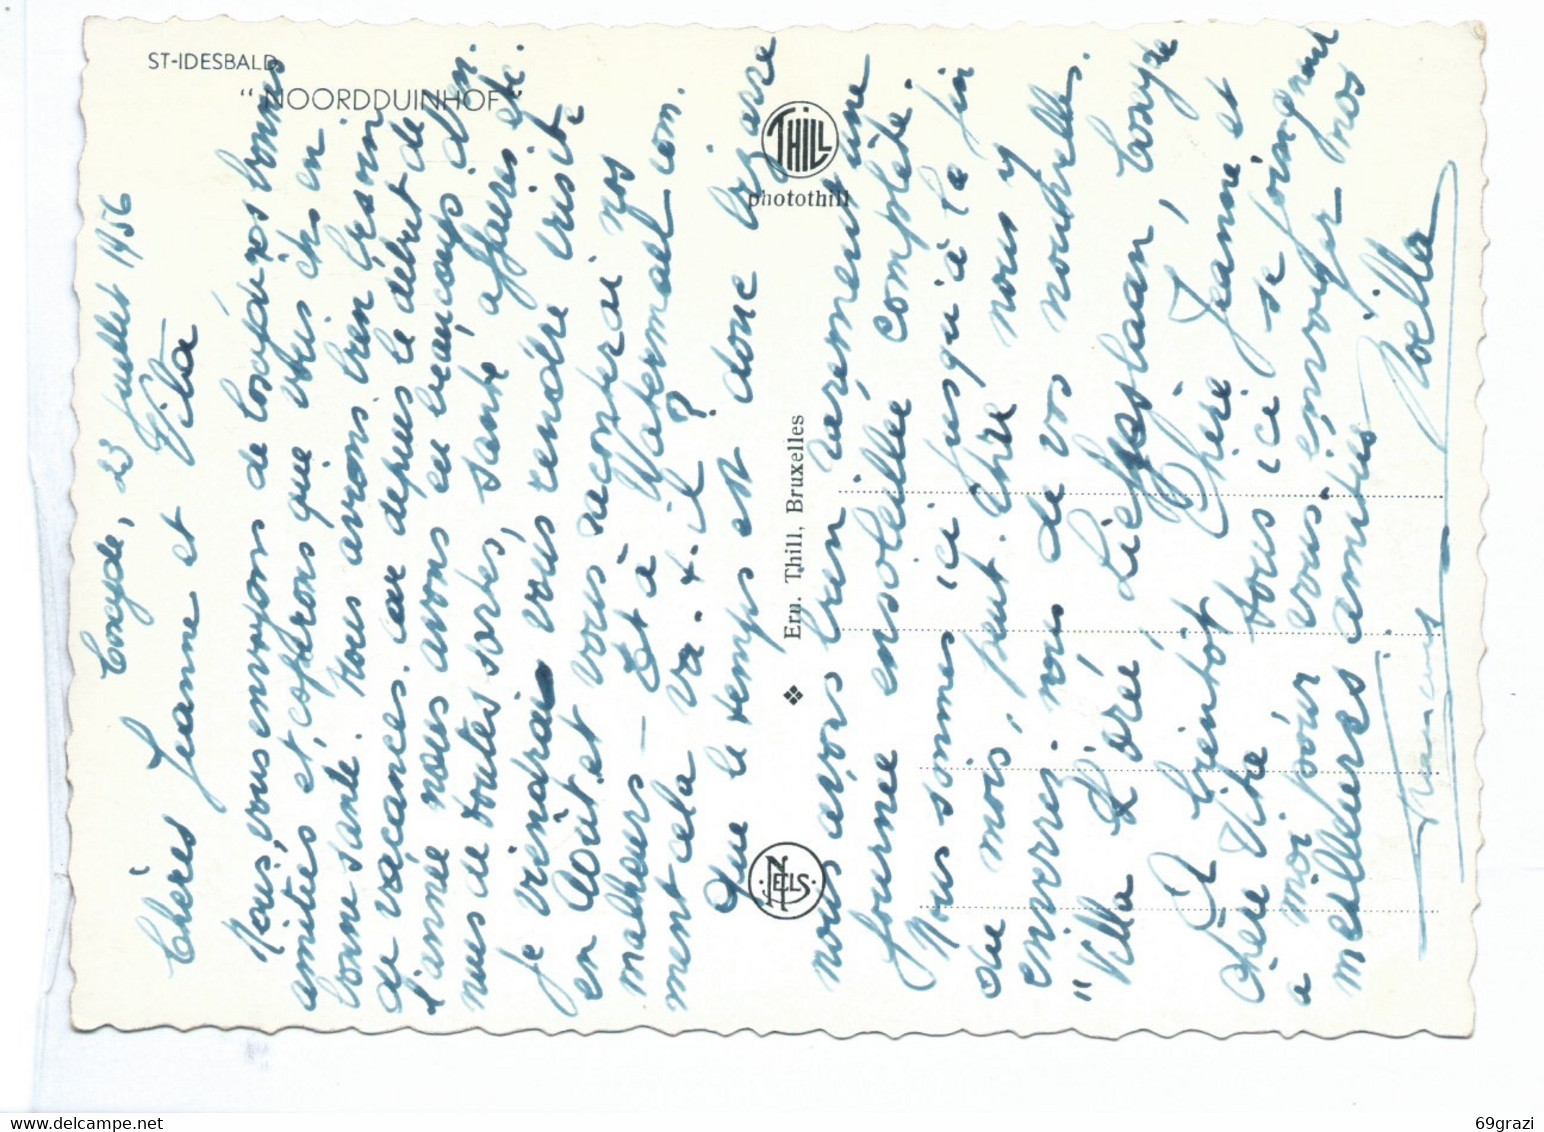 ST-IDESBALD
"NOORDDUINHOF"
THILL
photothill
Ern. Thill, Bruxelles
NELS
Coxyde, 23 Juillet 1956
Chères Jeanne et Vita
Nous vous envoyons de Coxyde nos bonnes
amitiés et espérons que vous êtes en
bonne santé. Nous avons bien besoin
de vacances car depuis le début de
l'année nous avons eu beaucoup d'en
nuis de toutes sortes, santé affaires etc.
Je viendrai vous rendre visite
en Août et vous raconterai nos
malheurs - Et à Watermael com
ment cela va-t-il?
Que le temps est donc bizarre
nous avons bien rarement une
journée ensoleillée complète.
Nous sommes ici jusqu'à la fin
du mois, peut être nous y
enverrez-vous de vos nouvelles.
"Villa Dorée, Coxyde
A bientôt Chère Jeanne et
chère Vita tous ici se joignent
à moi pour vous envoyer nos
meilleures amitiés
Francis
69grazi
delcampe.net